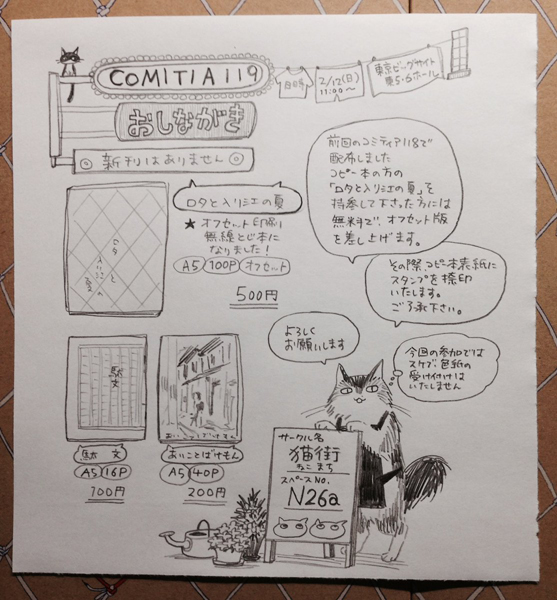 COMITIA 119
日時
2/12(日)
11:00〜
東京ビッグサイト
東5・6ホール
おしながき
新刊はありません
ロタと入り江の夏
★オフセット印刷
無線とじ本に
なりました!
A5 100P オフセット
500円
ロタと入り江の夏
前回のコミティア118で
配布しました
コピー本の方の
「ロタと入り江の夏」を
持参して下さった方には
無料で、オフセット版
を差し上げます。
その際コピー本表紙に
スタンプを捺印
いたします。
ご了承下さい。
よろしく
お願いします
今回の参加では
スケブ、色紙の
受け付けは
いたしません
駄文
駄文
A5 16P
100円
あいことばけもん
あいことばけもん
A5 40P
200円
サークル名
猫街
ねこまち
スペースNo.
N26a